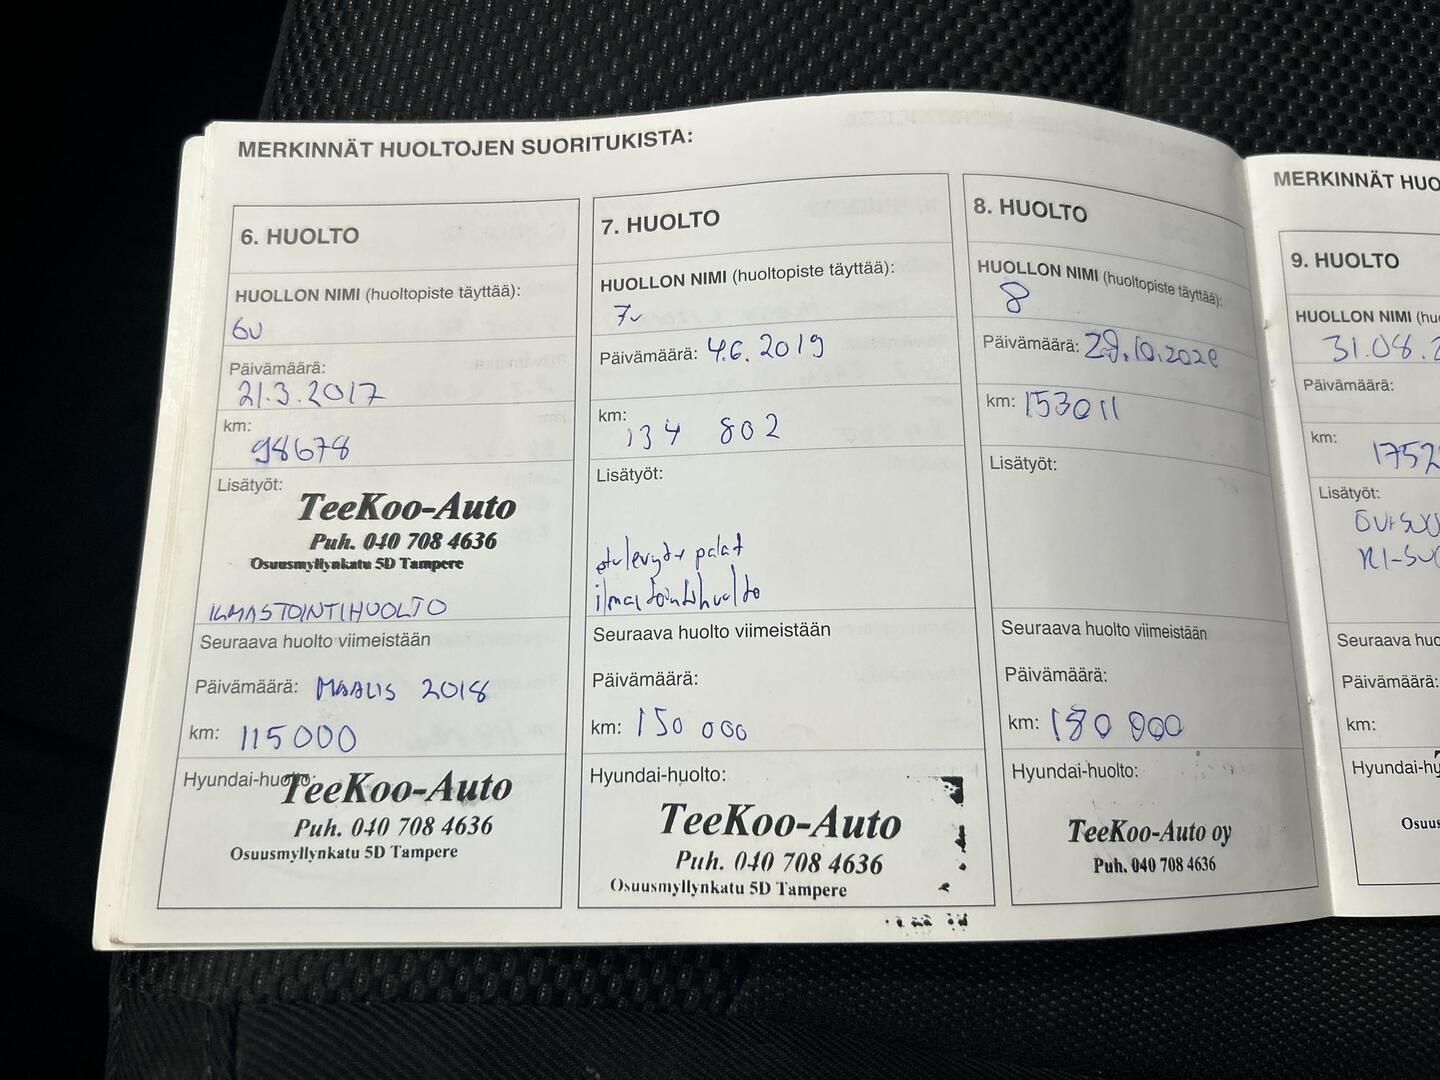 MERKINNÄT HUOLTOJEN SUORITUKISTA:
6. HUOLTO
HUOLLON NIMI (huoltopiste täyttää):
6v
Päivämäärä:
21.3.2017
km:
98678
Lisätyöt:
TeeKoo-Auto
Puh. 040 708 4636
Osuusmyllynkatu 5D Tampere
ILMASTOINTIHUOLTO
Seuraava huolto viimeistään
Päivämäärä: MAALIS 2018
km: 115000
Hyundai-huolto:
TeeKoo-Auto
Puh. 040 708 4636
Osuusmyllynkatu 5D Tampere
7. HUOLTO
HUOLLON NIMI (huoltopiste täyttää):
7v
Päivämäärä: 4.6. 2019
km:
134 802
Lisätyöt:
etulevyt+ palat
ilmastointihuolto
Seuraava huolto viimeistään
Päivämäärä:
km: 150 000
Hyundai-huolto:
TeeKoo-Auto
Puh. 040 708 4636
Osuusmyllynkatu 5D Tampere
8. HUOLTO
HUOLLON NIMI (huoltopiste täyttää):
8
Päivämäärä: 29.10.2020
km: 153011
Lisätyöt:
Seuraava huolto viimeistään
Päivämäärä:
km: 180 000
Hyundai-huolto:
TeeKoo-Auto oy
Puh. 040 708 4636
MERKINNÄT HUO
9. HUOLTO
HUOLLON NIMI (huo
31.08.2
Päivämäärä:
km:
1752
Lisätyöt:
Seuraava huo
Päivämäärä:
km:
Hyundai-hu
Osuus